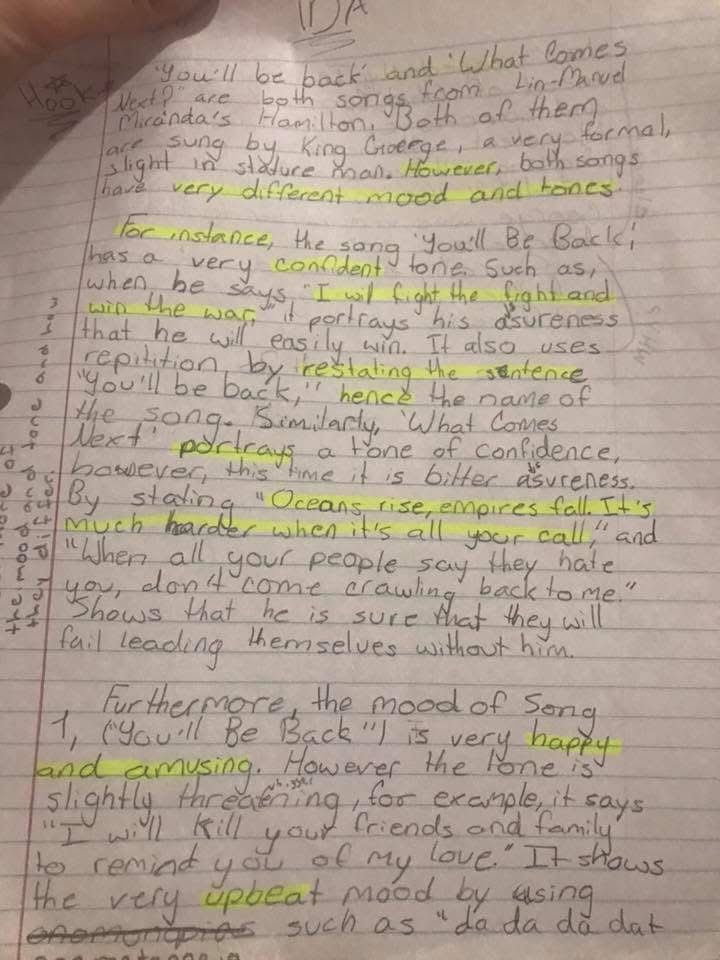 IDA
Hook
'You'll be back' and 'What Comes
Next?" are both songs from Lin-Manuel
Miranda's Hamilton. Both of them
are sung by King Groerge, a very formal,
slight in stature man. However, both songs
have very different mood and tones.
For instance, the song 'You'll Be Back',
has a very confident tone. Such as,
when he says, "I wil fight the fight and
win the war," it portrays his assureness
that he will easily win. It also uses
repitition, by restating the sentence
"You'll be back," hence the name of
the song. Similarly, 'What Comes
Next' portrays a tone of confidence,
however, this time it is bitter assureness.
By stating "Oceans rise, empires fall. It's
much harder when it's all your call," and
"When all your people say they hate
you, don't come crawling back to me."
Shows that he is sure that they will
fail leading themselves without him.
the mood and tone and how
they differ.
Furthermore, the mood of Song
1, ("You'll Be Back") is very happy
and amusing. However the tone is
slightly threatening, for example, it says
"I will kill your friends and family
to remind you of my love." It shows
the very upbeat mood by using
such as "da da da dat